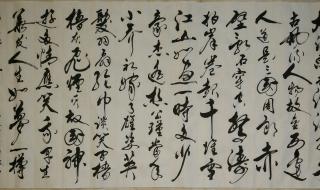 古風流人物故壘西邊
人道是三國周郎赤
壁亂石穿空驚濤
拍岸卷起千堆雪
江山如畫一時多少
豪傑遙想公瑾當年
小喬初嫁了雄姿英
發羽扇綸巾談笑間檣
櫓灰飛煙滅故國神
遊多情應笑我早生
華髮人生如夢一樽